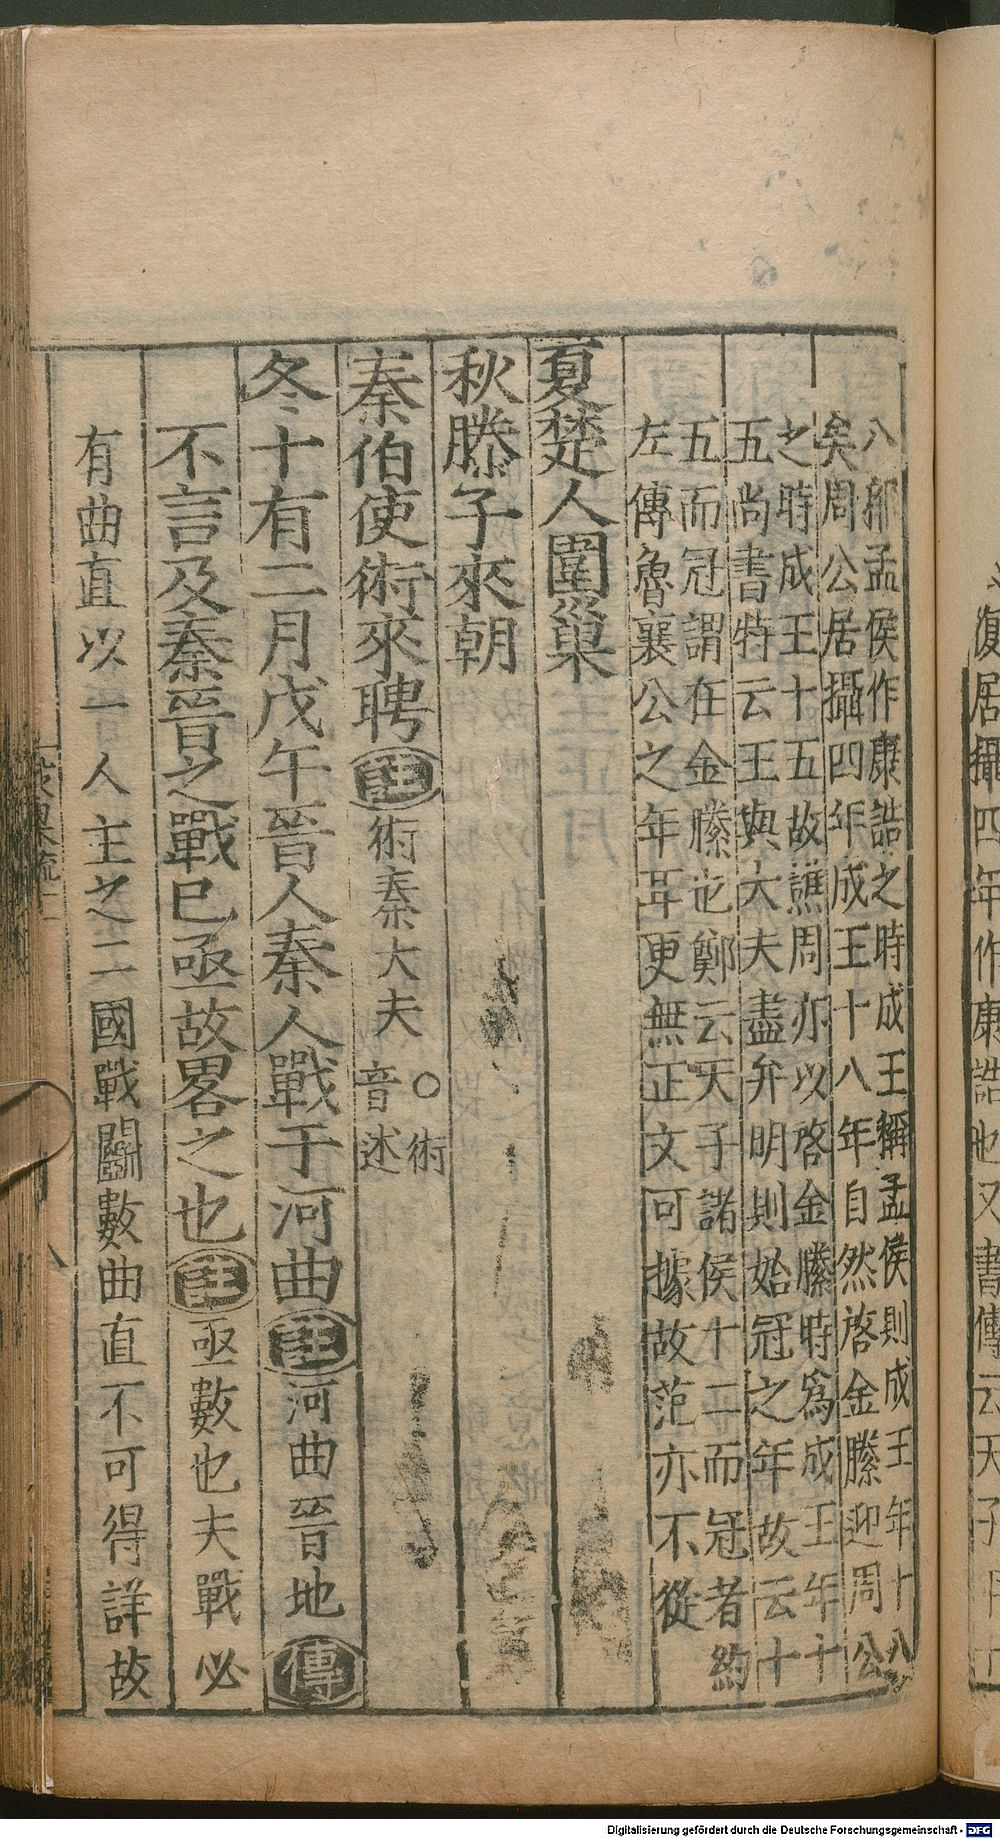 復居攝四年作康誥也又書傳云天子
八郊孟侯作康誥之時成王稱孟侯則成王年十八
矣周公居攝四年成王十八年自然啓金縢迎周公
之時成王十五故譙周亦以啓金縢時爲成王年十
五尚書特云王與大夫盡弁明則始冠之年故云十
五而冠謂在金縢也鄭云天子諸侯十二而冠者約
左傳魯襄公之年耳更無正文可據故范亦不從
夏楚人圍巢
秋滕子來朝
秦伯使術來聘 註 術秦大夫 ○術
音述
冬十有二月戊午晉人秦人戰于河曲 註 河曲晉地 傳
不言及秦晉之戰已亟故畧之也 註 亟數也夫戰必
有曲直以一人主之二國戰鬬數曲直不可得詳故
Digitalisierung gefördert durch die Deutsche Forschungsgemeinschaft - DFG